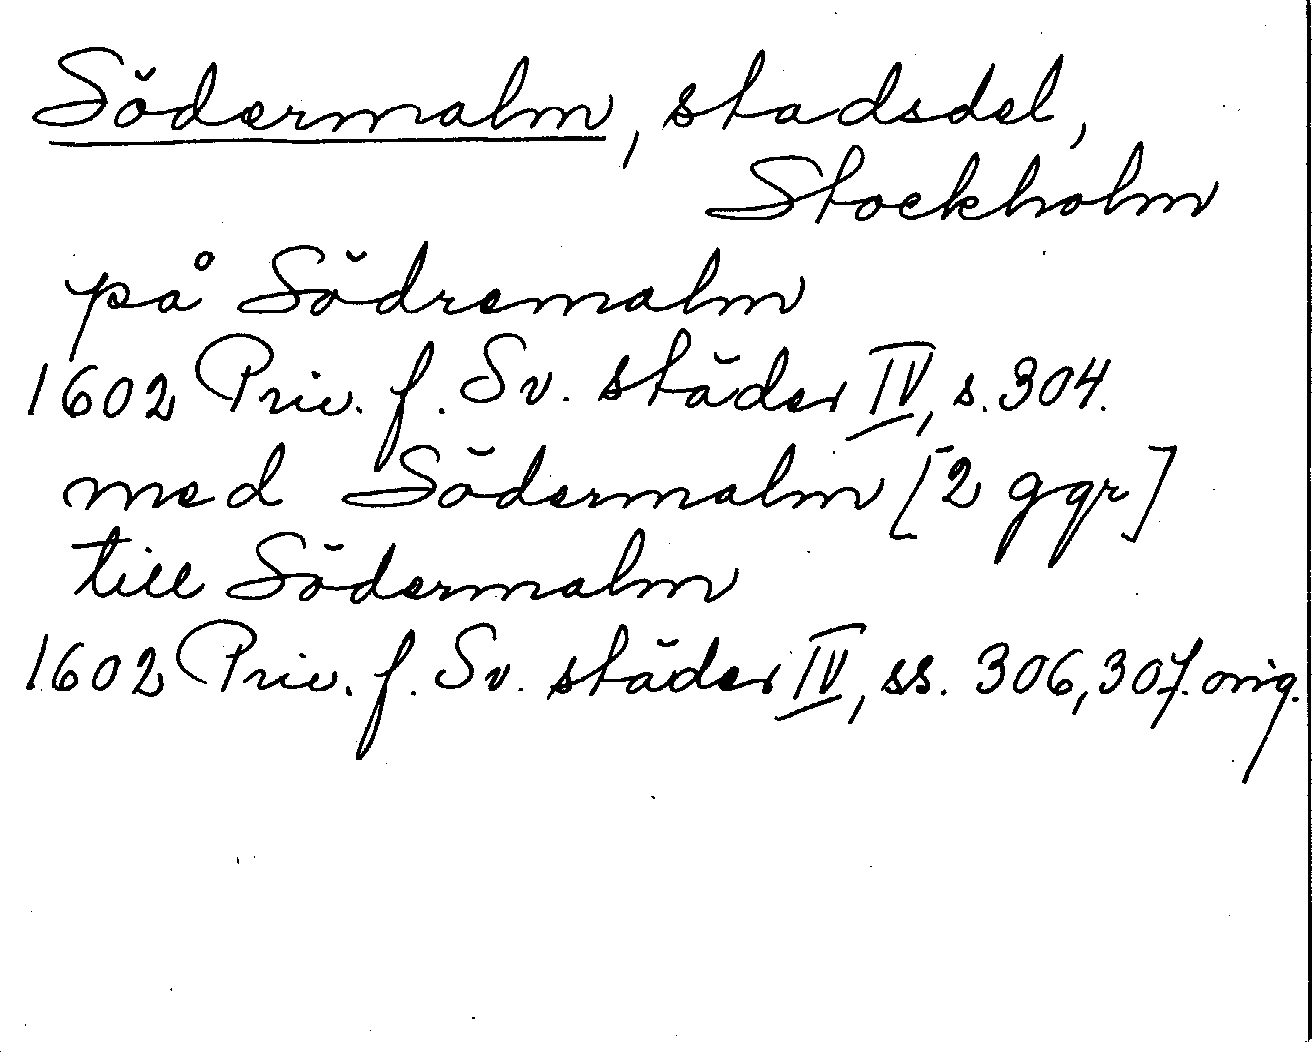 Södermalm, stadsdel,
Stockholm
på Södremalm
1602 Priv. f. Sv. städer IV, s. 304.
med Södermalm [2 ggr]
till Södermalm
1602 Priv. f. Sv. städer IV, ss. 306, 307. orig.